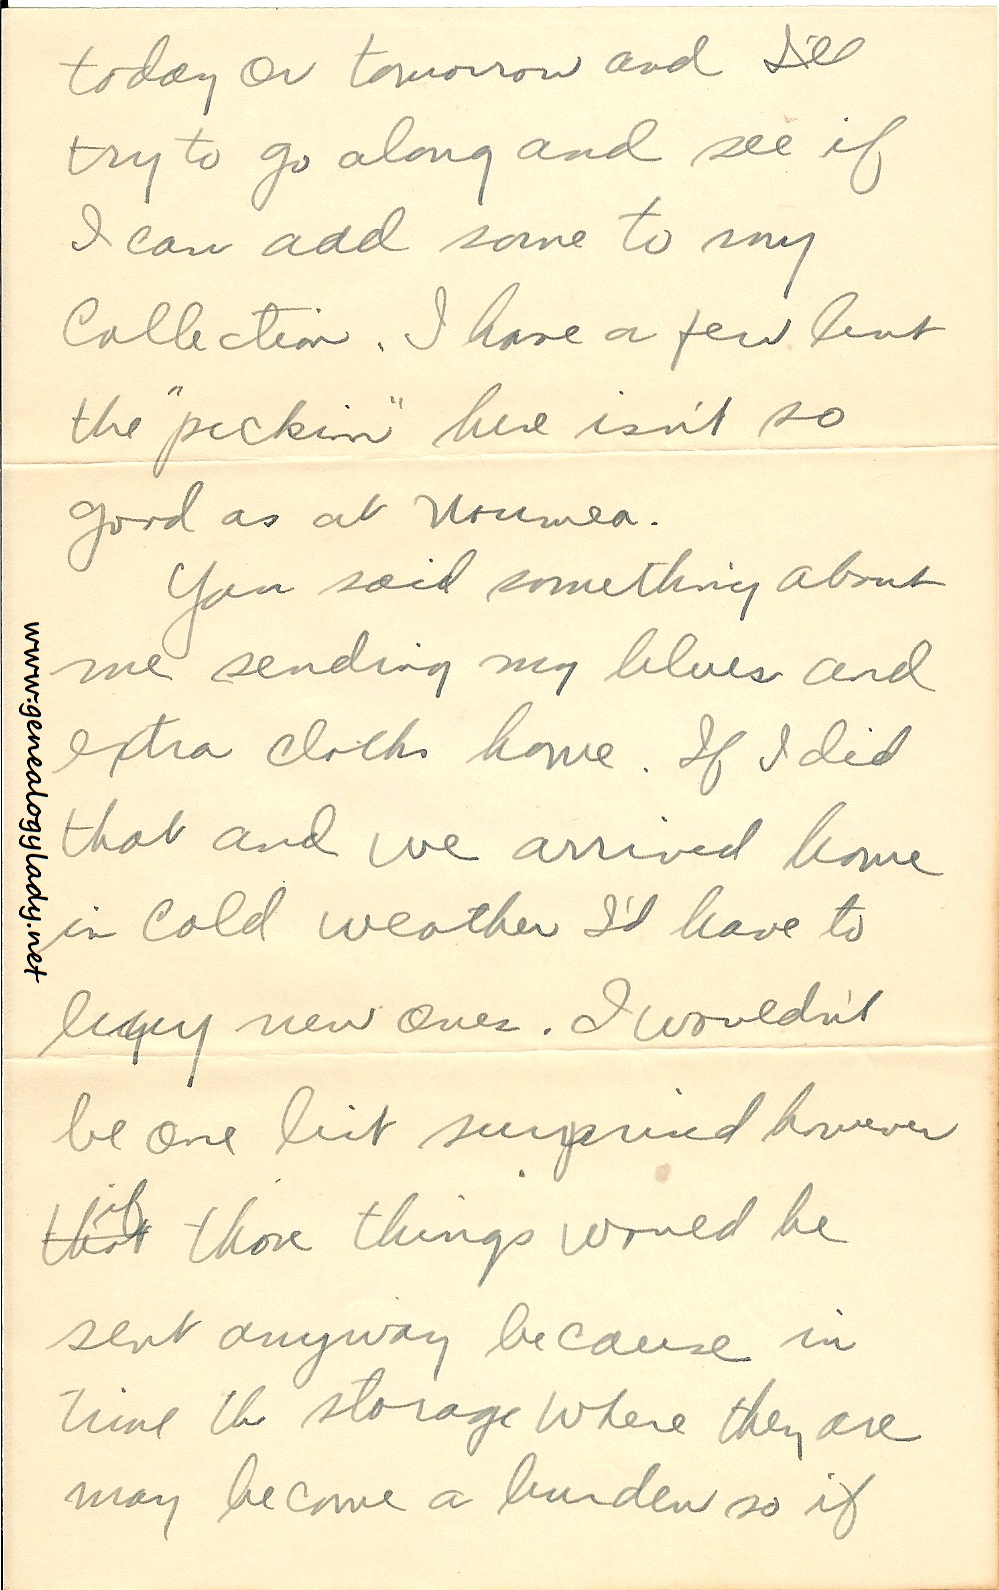 today or tomorrow and I'll
try to go along and see if
I can add some to my
Collection. I have a few but
the "pickin" here isn't so
good as at Noumea.
You said something about
me sending my blues and
extra cloths home. If I did
that and we arrived home
in cold weather I'd have to
buy new ones. I wouldn't
be one bit surprised however
that if those things would be
sent anyway because in
time the storage where they are
may become a burden so if
www.genealogylady.net